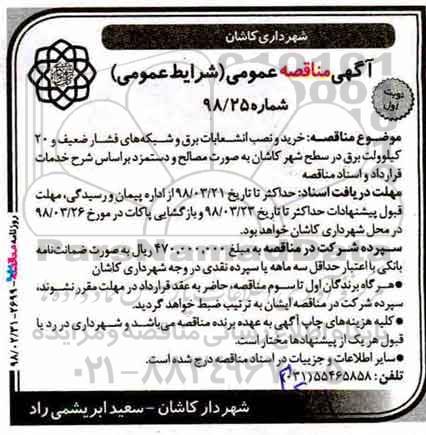 شهرداری کاشان
آگهی مناقصه عمومی (شرایط عمومی)
شماره ۹۸/۲۵
نوبت اول
موضوع مناقصه: خرید و نصب انشعابات برق و شبکه‌های فشار ضعیف و ۲۰
کیلوولت برق در سطح شهر کاشان به صورت مصالح و دستمزد براساس شرح خدمات
قرارداد و اسناد مناقصه
مهلت دریافت اسناد: حداکثر تا تاریخ ۹۸/۰۳/۲۱ از اداره پیمان و رسیدگی، مهلت
قبول پیشنهادات حداکثر تا تاریخ ۹۸/۰۳/۲۳ و بازگشایی پاکات در مورخ ۹۸/۰۳/۲۶
در محل شهرداری کاشان خواهد بود.
سپرده شرکت در مناقصه به مبلغ ۴۷۰,۰۰۰,۰۰۰ ریال به صورت ضمانت‌نامه
بانکی با اعتبار حداقل سه ماهه یا سپرده نقدی در وجه شهرداری کاشان
•هرگاه برندگان اول تا سوم مناقصه، حاضر به عقد قرارداد در مهلت مقرر نشوند،
سپرده شرکت در مناقصه ایشان به ترتیب ضبط خواهد گردید.
•کلیه هزینه‌های چاپ آگهی به عهده برنده مناقصه می‌باشد و شهرداری در رد یا
قبول هر یک از پیشنهادها مختار است.
•سایر اطلاعات و جزییات در اسناد مناقصه درج شده است.
تلفن: ۰۳۱)۵۵۴۶۵۸۵۸)
شهردار کاشان - سعید ابریشمی راد
روزنامه مناقصه مزایده
۹۸/۰۲/۳۱-۲۶۹۹
ParsNamadData
۰۲۱-۸۸۳۴۹۶۷۰